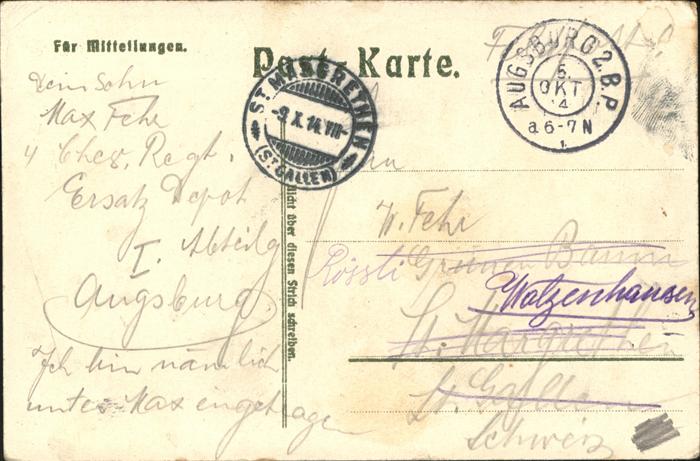 Für Mitteilungen.
Post-Karte.
AUGSBURG 2. B.P.
5
OKT
14
a 6-7 N
1.
ST MARGRETHEN
-9.X.14.VIII-
(ST GALLEN)
Dein Sohn
Max Fehr
4 Chev. Regt.
Ersatz Depot
I. Abteilg
Augsburg.
Ich bin nämlich
unter Max eingetragen
Nicht über diesen Strich schreiben.
W. Fehr
Rössli Grünen Baum
Walzenhausen
St. Margrethen
St. Gallen
Schweiz